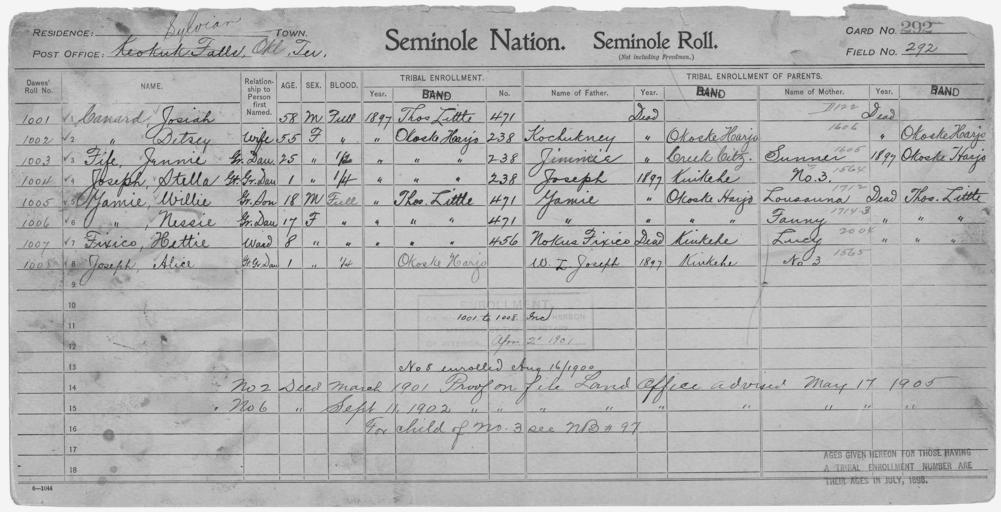 RESIDENCE: Sylvian TOWN.
POST OFFICE: Keokuk Falls, Okl. Ter.
Seminole Nation. Seminole Roll.
(Not including Freedmen.)
CARD NO. 292
FIELD NO. 292
Dawes' Roll No. NAME. Relationship to Person first Named. AGE. SEX. BLOOD. TRIBAL ENROLLMENT. Year. BAND No. TRIBAL ENROLLMENT OF PARENTS. Name of Father. Year. BAND Name of Mother. Year. BAND
1001 1 Canard, Josiah 58 M Full 1897 Thos. Little 471 Dead D122 Dead
1002 2 " Betsey Wife 55 F " " Okoske Harjo 238 Kochukney " Okoske Harjo 1606 " Okoske Harjo
1003 3 Fife, Jennie Gr. Dau 25 " 1/2 " " " 238 Jimmie " Creek Citz. Sunner 1605 1897 Okoske Harjo
1004 4 Joseph, Stella Gr. Gr. Dau 1 " 1/4 " " " 238 Joseph 1897 Kinkehe No. 3 1564
1005 5 Yamie, Willie Gr. Son 18 M Full " Thos. Little 471 Yamie " Okoske Harjo Lousanna 1712 Dead Thos. Little
1006 6 " Nessie Gr. Dau 17 F " " " " 471 " " " Fanny 1714-3 " " "
1007 7 Fixico, Hettie Ward 8 " " " " " 456 Nokus Fixico Dead Kinkehe Lucy 2004 " " "
1008 8 Joseph, Alice Gr. Gr. Dau 1 " 1/4 Okoske Harjo W. L. Joseph 1897 Kinkehe No 3 1565
9
10
ENROLLMENT
11 1001 to 1008 Inc HEREON
12 Apr. 2 1901
13 No 8 enrolled Aug 16/1900
14 No 2 Died March 1901 Proof on file Land Office advised May 17 1905
15 " No 6 " Sept 11, 1902 " " " " " " " "
16 For child of No. 3 see NB # 97
17
18
AGES GIVEN HEREON FOR THOSE HAVING
A TRIBAL ENROLLMENT NUMBER ARE
THEIR AGES IN JULY, 1898.
6—1044